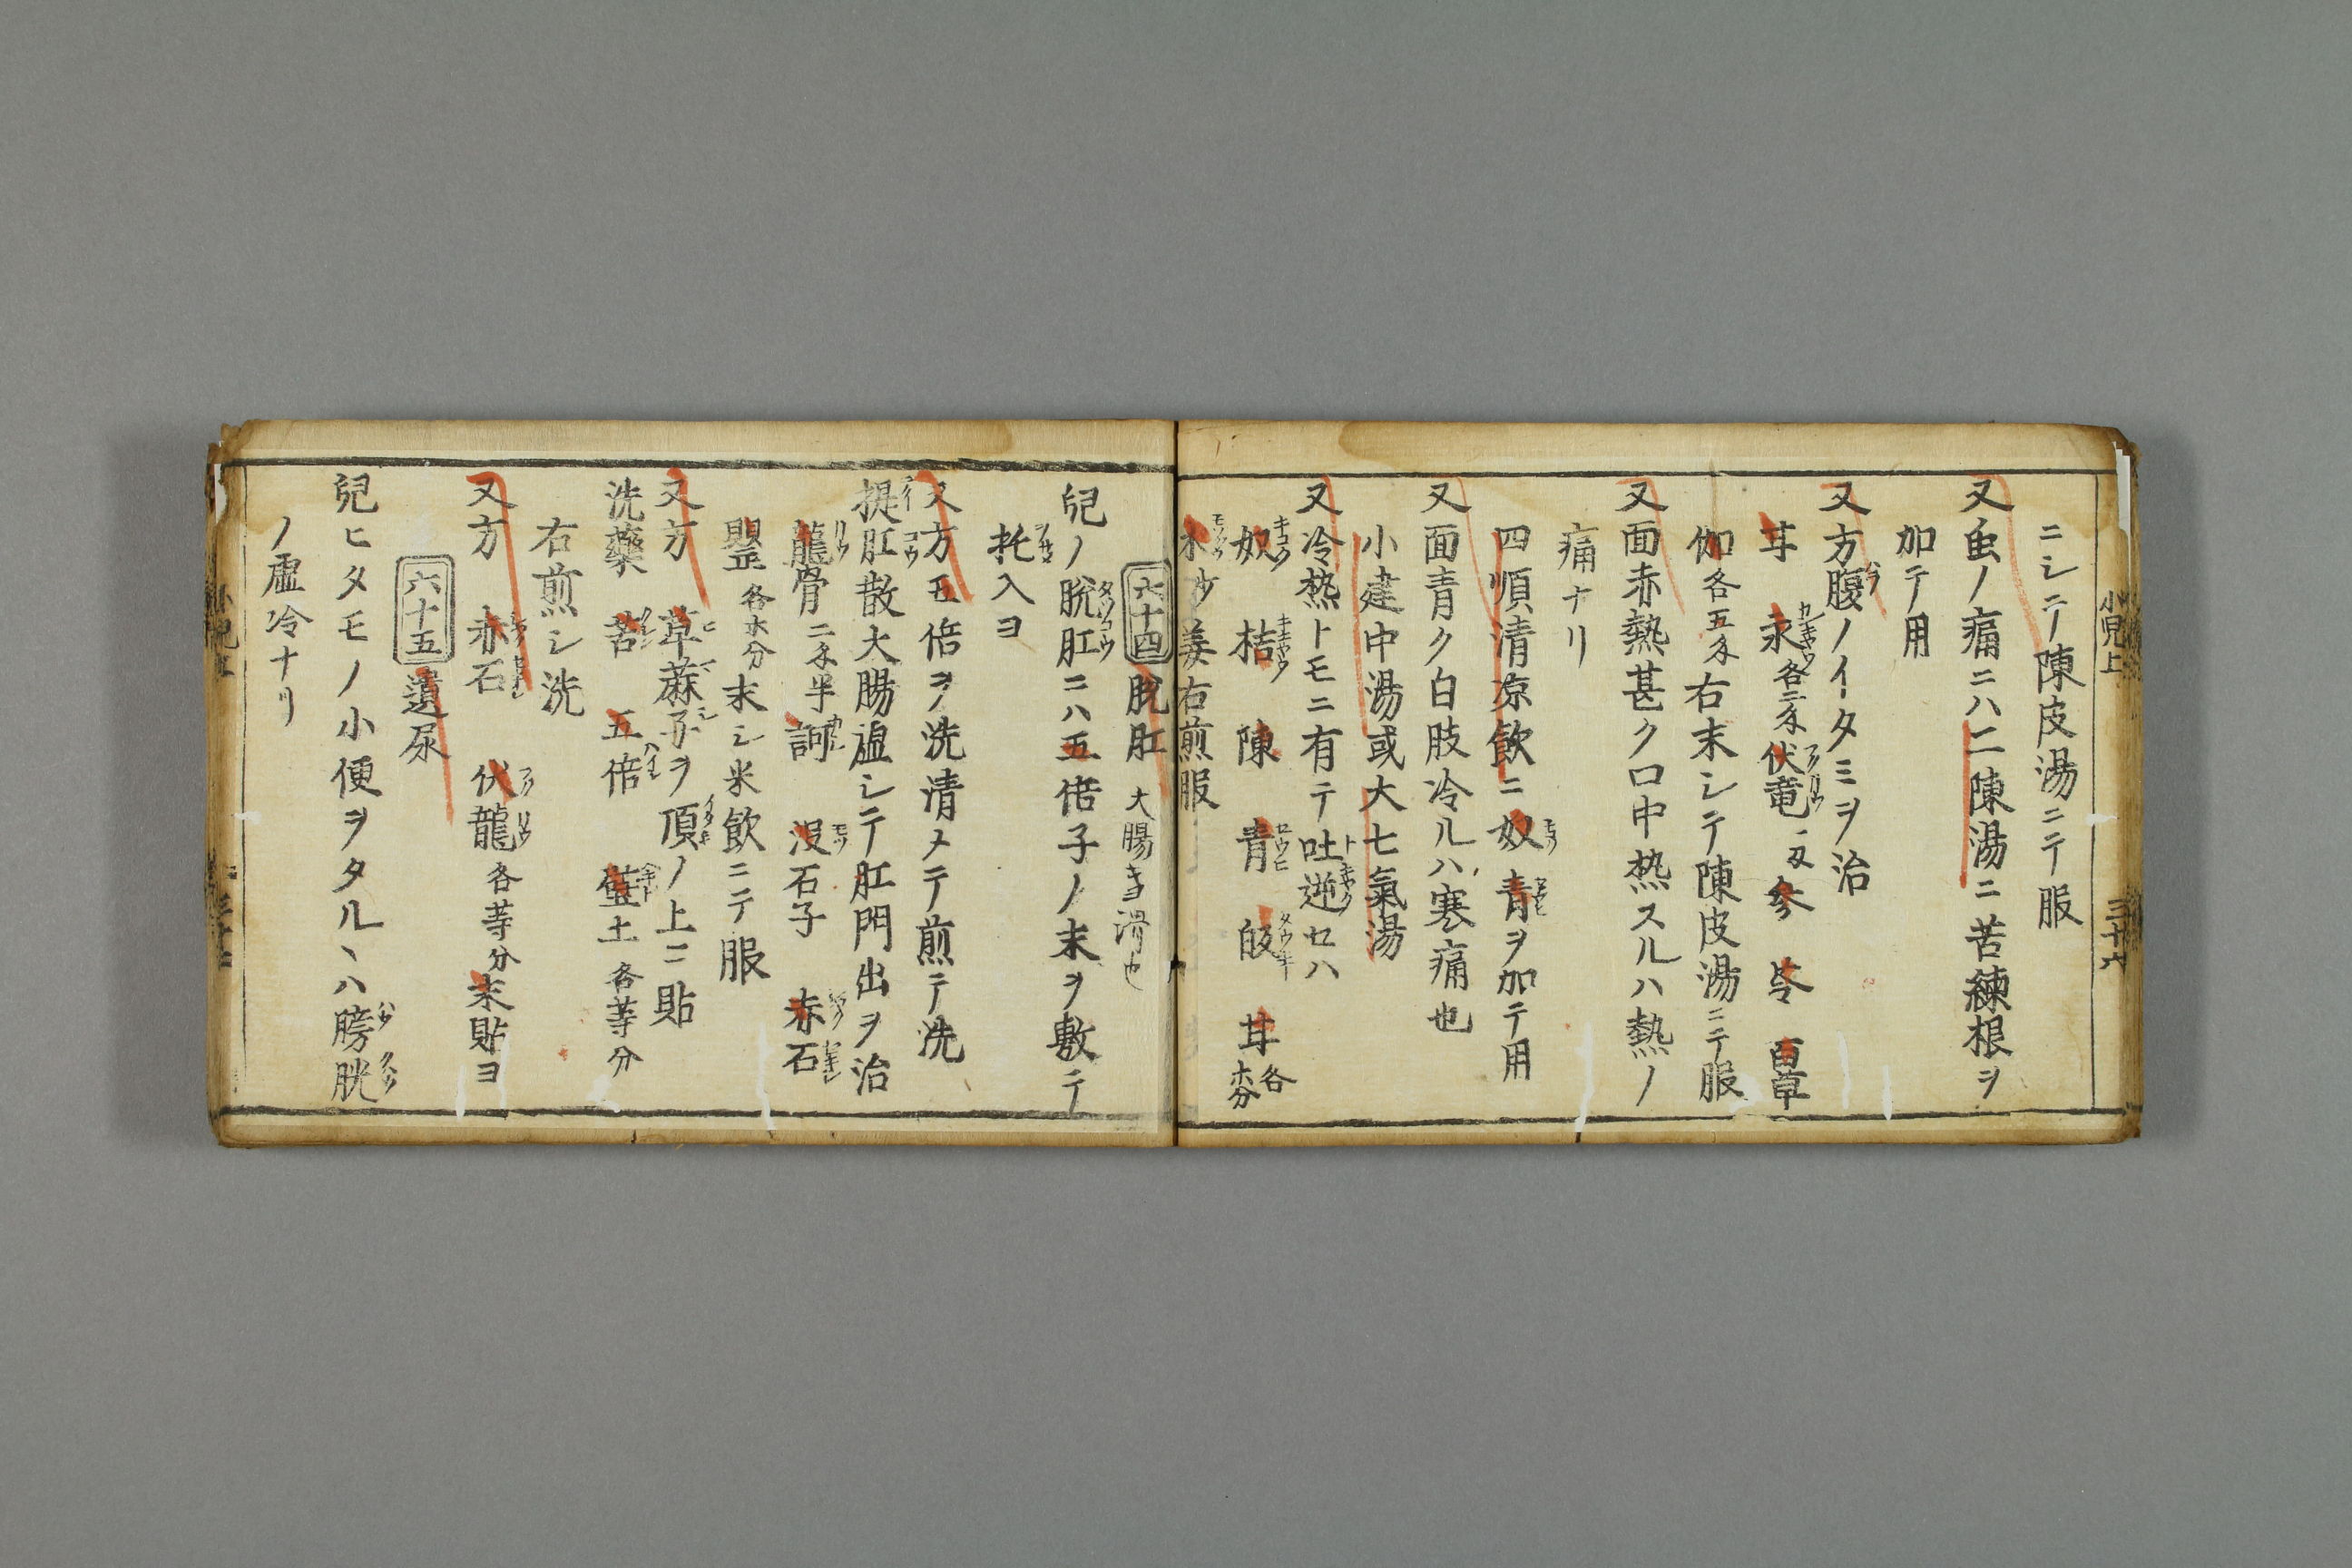 小児上
三十六
ニシテ陳皮湯ニテ服
又虫ノ痛ニハ二陳湯ニ苦練根ヲ
加テ用
又方腹ノイータミヲ治
永各二
伏竜
参 苓
伽各五
右末シテ陳皮湯ニテ服
又面赤熱甚ク口中热スルハ熱ノ
痛ナリ
四順清凉飲ニ奴 青ヲ加テ用
又面青ク白肢冷ルハ寒痛也
小建中湯或大七氣湯
又冷熱トモニ有テ吐逆セハ
奴 桔 陳 青
姜右煎服
六十四 脫肛
児ノ脫肛ニハ五倍子ノ末ヲ敷テ
托入ヨ
又方五倍ヲ洗清メテ煎テ洗
提肛散大腸虛シテ肛門出ヲ治
龍骨 訶 没石子 赤石
末シ米飲ニテ服
又方 草蔴子ヲ頂ノ上ニ貼
洗藥 苦 五倍 土各等分
右煎シ洗
又方 赤石 伏龍 各等分末貼ヨ
六十五 遺尿
児ヒタモノ小便ヲタルヽハ膀胱
ノ虛冷ナリ